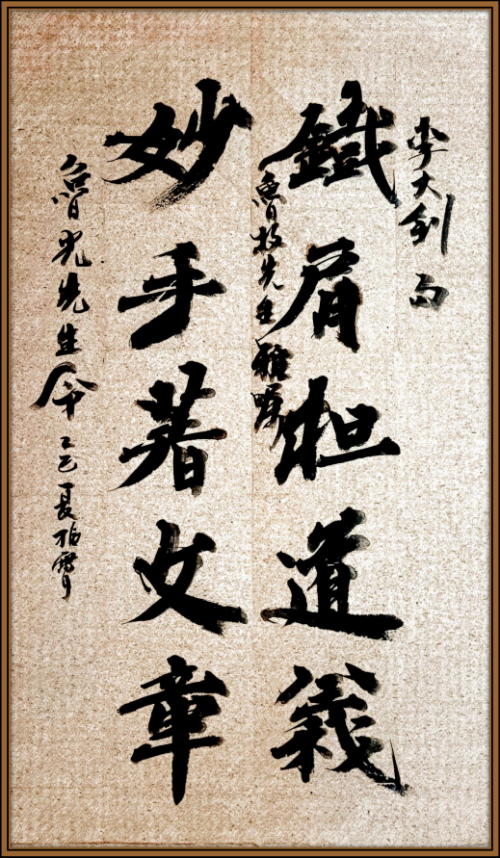 李大钊句
鐵肩担道義
魯牧先生雅嘱
妙手著文章
魯光先生令 乙巳夏